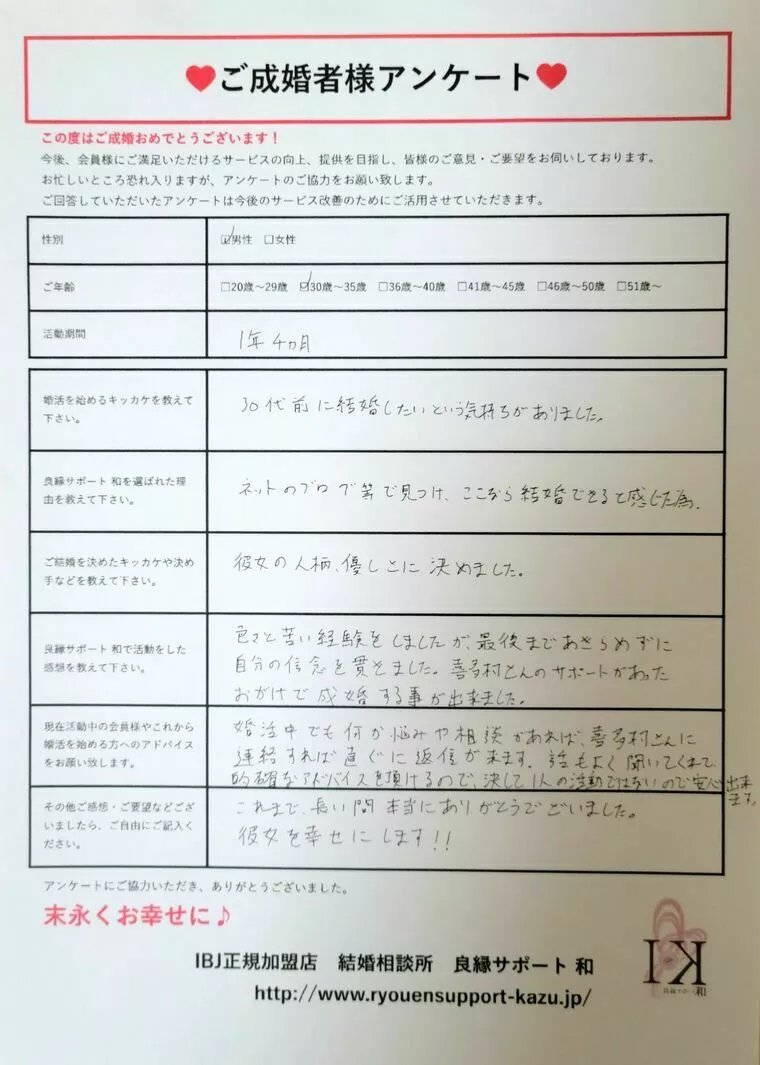 ♥ご成婚者様アンケート♥
この度はご成婚おめでとうございます！
今後、会員様にご満足いただけるサービスの向上、提供を目指し、皆様のご意見・ご要望をお伺いしております。
お忙しいところ恐れ入りますが、アンケートのご協力をお願い致します。
ご回答していただいたアンケートは今後のサービス改善のためにご活用させていただきます。
性別
☑男性 □女性
ご年齢
□20歳～29歳 ☑30歳～35歳 □36歳～40歳 □41歳～45歳 □46歳～50歳 □51歳～
活動期間
1年4ヵ月
婚活を始めるキッカケを教えて
下さい。
30代前に結婚したいという気持ちがありました。
良縁サポート 和を選ばれた理
由を教えて下さい。
ネットのブログ等で見つけ、ここなら結婚できると感じた為。
ご結婚を決めたキッカケや決め
手などを教えて下さい。
彼女の人柄、優しさに決めました。
良縁サポート 和で活動をした
感想を教えて下さい。
色々と苦い経験をしましたが、最後まであきらめずに
自分の信念を貫きました。喜多村さんのサポートがあった
おかげで成婚する事が出来ました。
現在活動中の会員様やこれから
婚活を始める方へのアドバイス
をお願い致します。
婚活中でも何か悩みや相談があれば、喜多村さんに
連絡すれば直ぐに返信が来ます。話もよく聞いてくまて
的確なアドバイスを頂けるので、決して1人の活動ではないので安心出来
ます。
その他ご感想・ご要望などござ
いましたら、ご自由にご記入く
ださい。
これまで、長い間本当にありがとうございました。
彼女を幸せにします!!
アンケートにご協力いただき、ありがとうございました。
末永くお幸せに♪
IBJ正規加盟店 結婚相談所 良縁サポート 和
http://www.ryouensupport-kazu.jp/
KI
良縁サポート 和